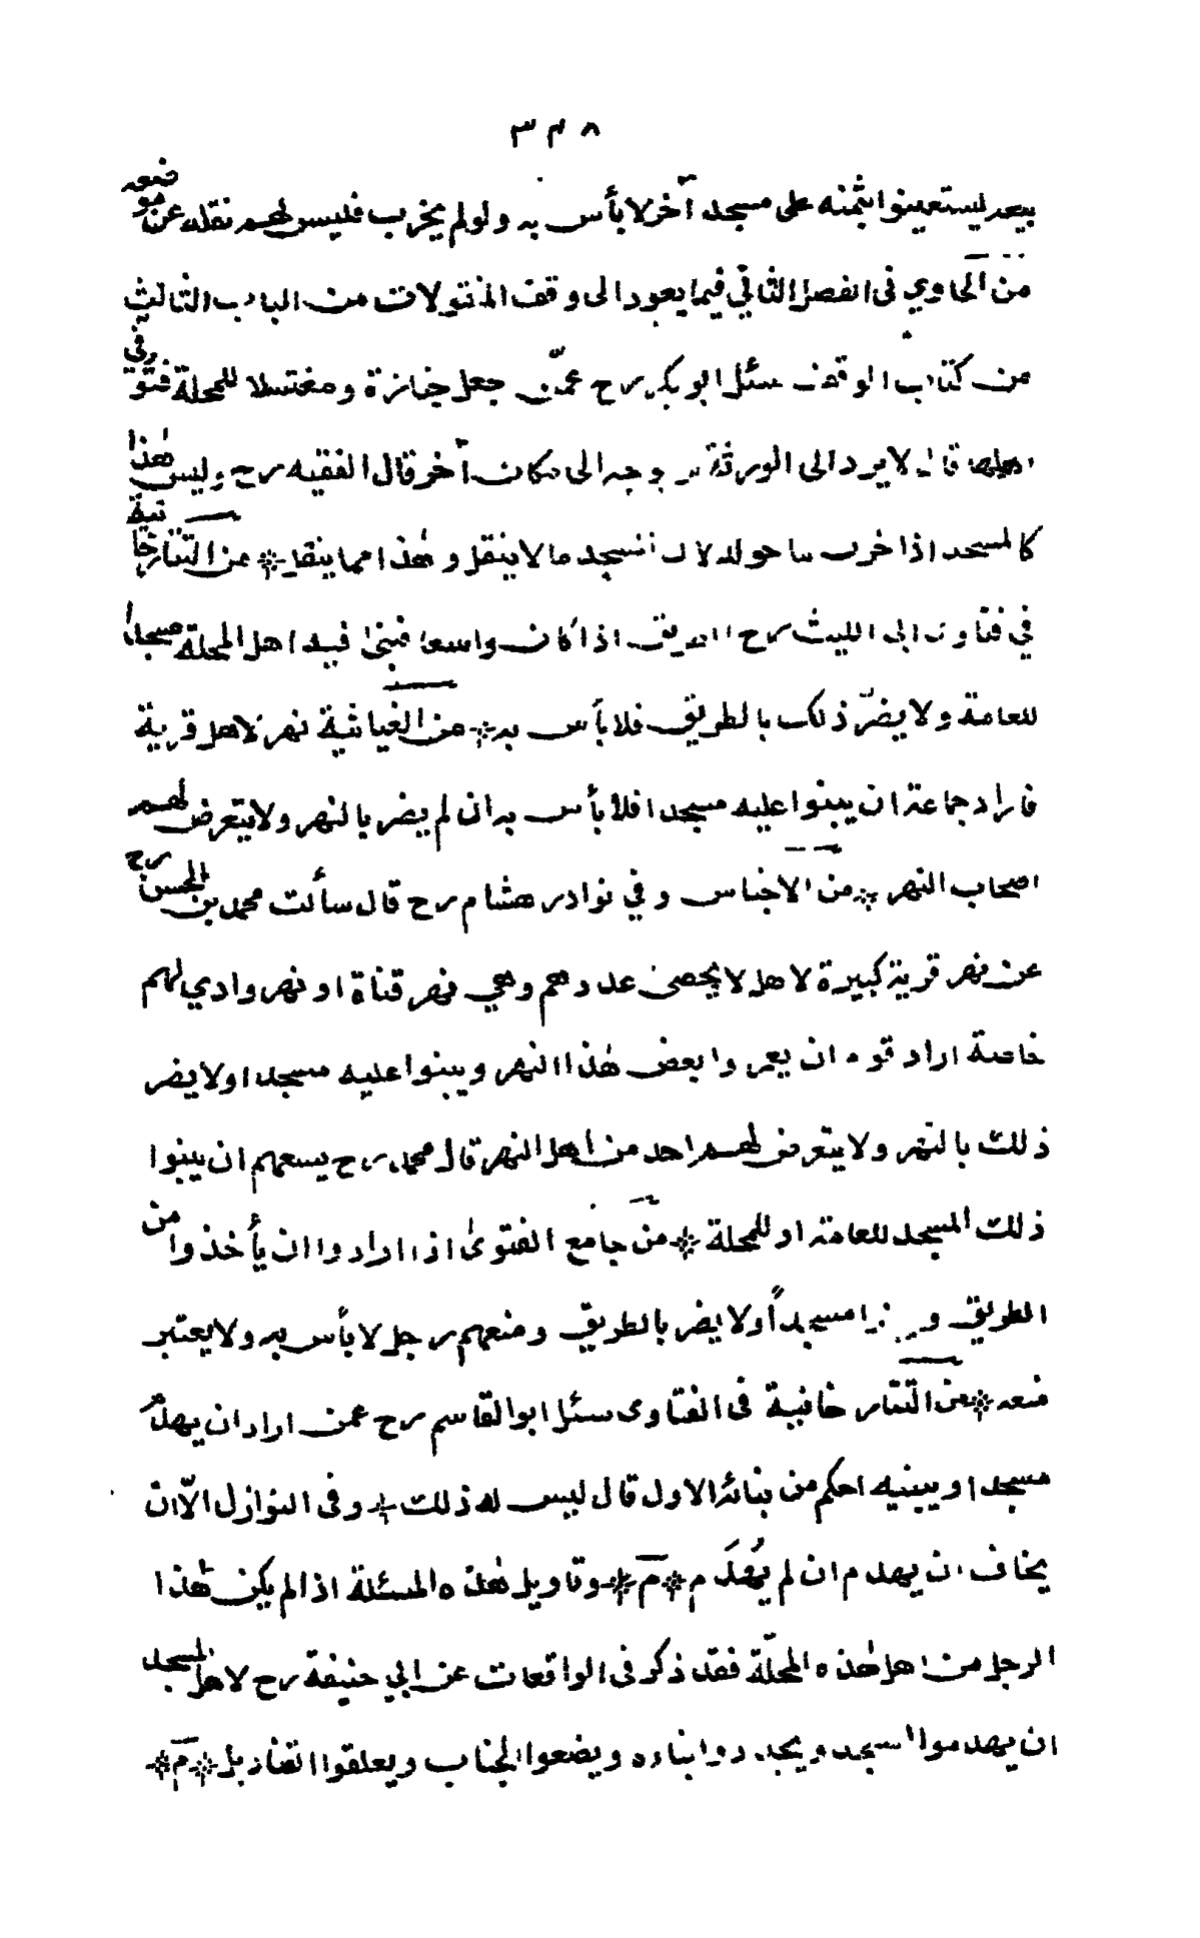 ٣٤٨
بيعه ليستعينوا بثمنه على مسجد آخر لا بأس به ولو لم يخرب فليس لهم نقله عن موضعه
من الحاوي فى الفصل الثاني فيما يعود الى وقف المنقولات من الباب الثالث
من كتاب الوقف سئل ابو بكر رح عمّن جعل جنازة ومغتسلا للمحلة فتوفي
اهلها قال لا يرد الى الورثة بل يوجه الى مكان آخر قال الفقيه رح وليس هٰذا
كالمسجد اذا خرب ما حوله لان المسجد مالا ينقل وهٰذا مما ينقل ❊ من التتارخانية
في فتاوى ابى الليث رح الطريق اذا كان واسعا فبنىٰ فيه اهل المحلة مسجدا
للعامة ولا يضرّ ذلك بالطريق فلا بأس به ❊ من الغياثية نهر لاهل قرية
فاراد جماعة ان يبنوا عليه مسجدا فلا بأس به ان لم يضر بالنهر ولا يتعرض لهم
اصحاب النهر ❊ من الاجناس وفي نوادر هشام رح قال سألت محمد بن الحسن رح
عن نهر قرية كبيرة لاهل لا يحصى عددهم وهي نهر قناة او نهر وادي لهم
خاصة اراد قوم ان يعمروا بعض هٰذا النهر ويبنوا عليه مسجدا ولا يضر
ذلك بالنهر ولا يتعرض لهم احد من اهل النهر قال محمد رح يسعهم ان يبنوا
ذلك المسجد للعامة او للمحلة ❊ من جامع الفتوىٰ اذا ارادوا ان يأخذوا من
الطريق مسجداً ولا يضر بالطريق ومنعهم رجل لا بأس به ولا يعتبر
منعه ❊ من التتار خانية فى الفتاوى سئل ابو القاسم رح عمن اراد ان يهدم
مسجدا ويبنيه احكم من بنائه الاول قال ليس له ذلك ❊ وفى النوازل الاّ ان
يخاف ان يهدم ان لم يُهدَم ❊ م ❊ وتاويل هٰذه المسئلة اذا لم يكن هٰذا
الرجل من اهل هٰذه المحلّة فقد ذكر فى الواقعات عن ابي حنيفة رح لاهل المسجد
ان يهدموا المسجد ويجددوا بناءه ويضعوا الجناب ويعلقوا القناديل ❊ م ❊